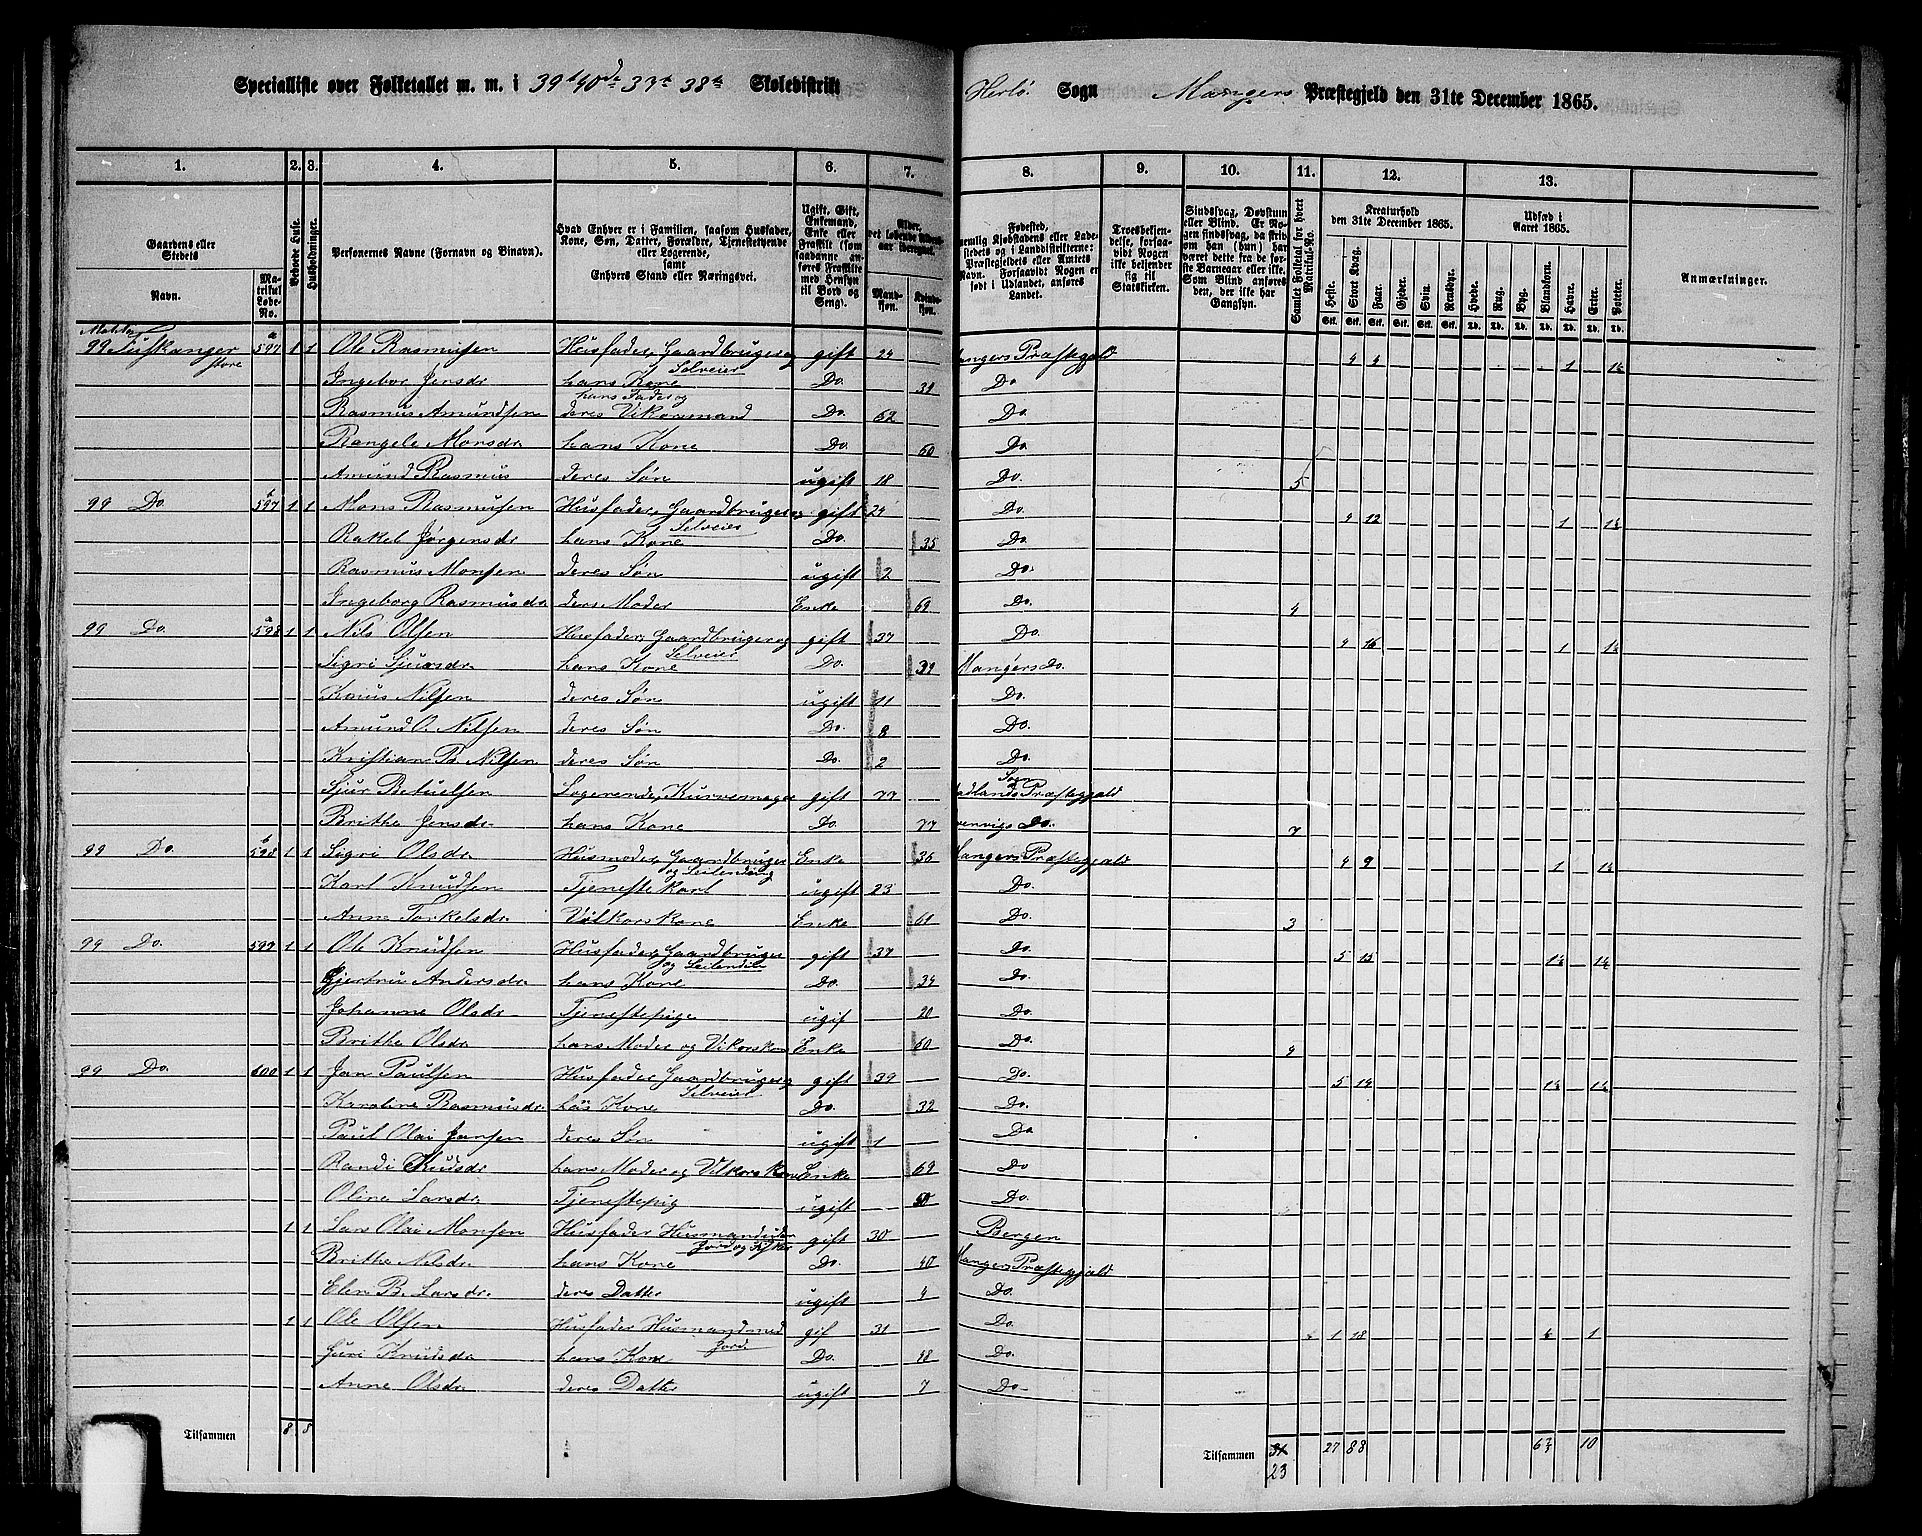 Specialliste over Folketallet m. m. i 39t 40de 37te 38te Skoledistrikt Herlø Sogn Mangers Præstegjeld den 31te December 1865.
1. 2. 3. 4. 5. 6. 7. 8. 9. 10. 11. 12. 13.
Gaardens eller Stedets
Navn. Matrikul Løbe-No.
Beboede Huse.
Husholdninger.
Personernes Navne (Fornavn og Binavn).
Hvad Enhver er i Familien, saasom Husfader, Kone, Søn, Datter, Forældre, Tjenestetyende eller Logerende, samt Enhvers Stand eller Næringsvei.
Ugift, Gift, Enkemand, Enke eller Fraskilt (som saadanne anføres Fraskilte med Hensyn til Bord og Seng).
Mandkjøn. Kvindekjøn.
Troesbekjendelse, forsaavidt Nogen ikke bekjender sig til Statskirken.
Sindssvag, Døvstum eller Blind.
Samlet Folketal for hvert Matrikul-No.
Kreaturhold den 31te December 1865.
Udsæd i Aaret 1865.
Heste. Stort Kvæg. Faar. Gjeder. Svin. Rensdyr. Hvede. Rug. Byg. Blandkorn. Havre. Erter. Poteter.
Anmærkninger.
99 Tufskanger store 597a 1 1 Ole Rasmussen Husfader, Gaardbruger og Selveier gift 24 Mangers Præstegjald 4 4 1 1½
Ingebor Jensdr hans Kone Do. 34 Do
Rasmus Amundsen hans Fader og deres Vikorsmand Do. 62 Do.
Rangele Monsdr hans Kone Do. 60 Do.
Amund Rasmus deres Søn ugift 18 Do. 5
99 Do. 597b 1 1 Mons Rasmussen Husfader, Gaardbruger og Selveier gift 24 Do. 4 12 1 1½
Rakel Jørgensdr hans Kone Do. 35 Do.
Rasmus Monsen deres Søn ugift 2 Do.
Ingeborg Rasmusdr deres Moder Enke 69 Do. 4
99 Do. 598a 1 1 Nils Olsen Husfader, Gaardbruger og Selveier gift 37 Do. 4 16 1 1½
Sigri Sjursdr. hans Kone Do. 39 Mangers Do.
Knus Nilsen deres Søn ugift 11 Do.
Amund O. Nilsen deres Søn Do. 8 Do.
Kristian Nilsen deres Søn Do. 2 Do.
Sjur Betuelsen Logerende, Kurvemager gift 77 Sogn Præstegjald
Brithe Jensdr. hans Kone Do. 77 Do. 7
99 Do. 598b 1 1 Sigri Olsdr. Husmoder, Gaardbruger og Leilending Enke 36 Mangers Præstegjald 4 9 1 1½
Karl Knudsen Tjenestekarl ugift 23 Do.
Anne Torkelsdr. Vilkorskone Enke 61 Do. 3
99 Do. 599 1 1 Ole Knudsen Husfader, Gaardbruger og Leilendin gift 37 Do. 5 15 1½ 1½
Gjertrue Andersdr. hans Kone Do. 34 Do.
Johanne Olsdr. Tjenestepige ugif 20 Do.
Brithe Olsdr. hans Moder og Vikorskone Enke 60 Do. 4
99 Do. 600 1 1 Jan Paulsen Husfader Gaardbruger og Selveier gift 39 Do. 5 14 1½ 1½
Karoline Rasmusdr. hans Kone Do. 32 Do.
Paul Olai Jansen deres Søn ugift 1 Do
Randi Knusdr hans Moder og Vilkorskone Enke 69 Do
Oline Larsdr. Tjenestepig ugift Do.
1 1 Lars Olai Monsen Husfader Husmand uden Jord og Fisker gift 30 Bergen
Brithe Nilsdr. hans Kone Do. 40 Mangers Præstegjald
Elen B. Larsdr. deres Datter ugift 4 Do.
1 1 Ole Olsen Husfader Husmand med Jord gif 31 Do. 1 18 1
Guri Knudsdr hans Kone Do. 48 Do.
Anne Olsdr. deres Datter ugift 7 Do
Tilsammen 8 8 Tilsammen 23 27 88 10